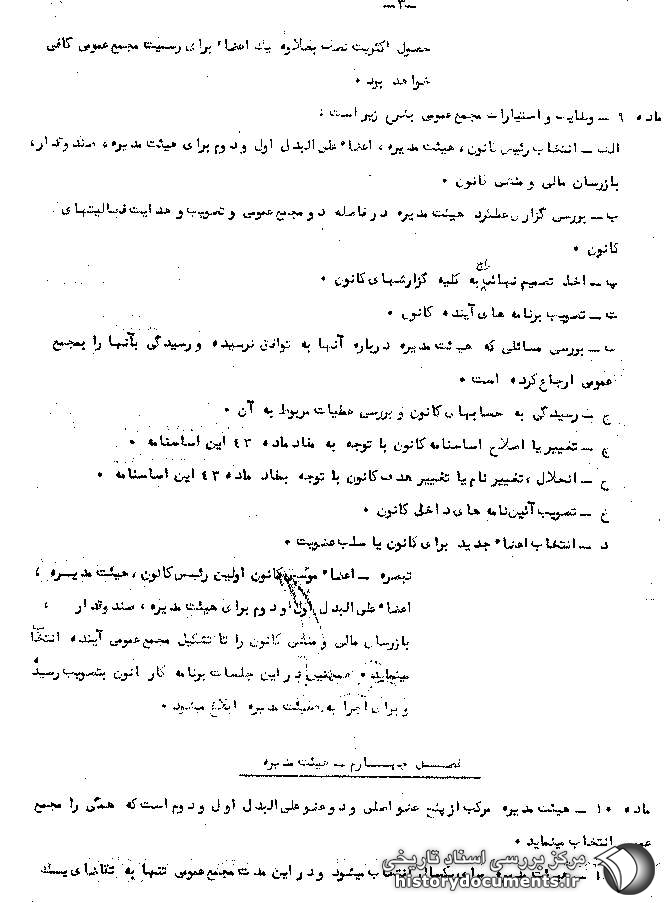 -۳-
حصول اکثریت نصف بعلاوه یک اعضاء برای رسمیت مجمع عمومی کافی
خواهد بود .
ماده ۹ - وظایف و امتیازات مجمع عمومی بشرح زیر است :
الف - انتخاب رئیس کانون ، هیئت مدیره ، اعضاء علی البدل اول و دوم برای هیئت مدیره ، صندوقدار ،
بازرسان مالی و منشی کانون .
ب - بررسی گزارش عملکرد هیئت مدیره در فاصله دو مجمع عمومی و تصویب و هدایت فعالیتهای
کانون .
پ - اخذ تصمیم نهائی راجع به کلیه گزارشهای کانون .
ت - تصویب برنامه های آینده کانون .
ث - بررسی مسائلی که هیئت مدیره درباره آنها به توافق نرسیده و رسیدگی بآنها را بمجمع
عمومی ارجاع کرده است .
ج - رسیدگی به حسابهای کانون و بررسی عملیات مربوط به آن .
چ - تغییر یا اصلاح اساسنامه کانون با توجه به مفاد ماده ۴۲ این اساسنامه .
ح - انحلال ، تغییر نام یا تغییر هدف کانون با توجه بمفاد ماده ۴۳ این اساسنامه .
خ - تصویب آئین نامه های داخلی کانون .
د - انتخاب اعضاء جدید برای کانون یا سلب عضویت .
تبصره - اعضاء موسس کانون اولین رئیس کانون ، هیئت مدیره ،
اعضاء علی البدل اول و دوم برای هیئت مدیره ، صندوقدار ،
بازرسان مالی و منشی کانون را تا تشکیل مجمع عمومی آینده انتخاب
مینماید . همچنین در این جلسات برنامه کار کانون بتصویب رسیده
و برای اجرا به هیئت مدیره ابلاغ میشود .
فصل چهارم - هیئت مدیره
ماده ۱۰ - هیئت مدیره مرکب از پنج عضو اصلی و دو عضو علی البدل اول و دوم است که همگی را مجمع
عمومی انتخاب مینماید .
هیئت مدیره برای یکسال انتخاب میشود و در این مدت مجمع عمومی تنها به تقاضای یک
مرکز بررسی اسناد تاریخی
historydocuments.ir